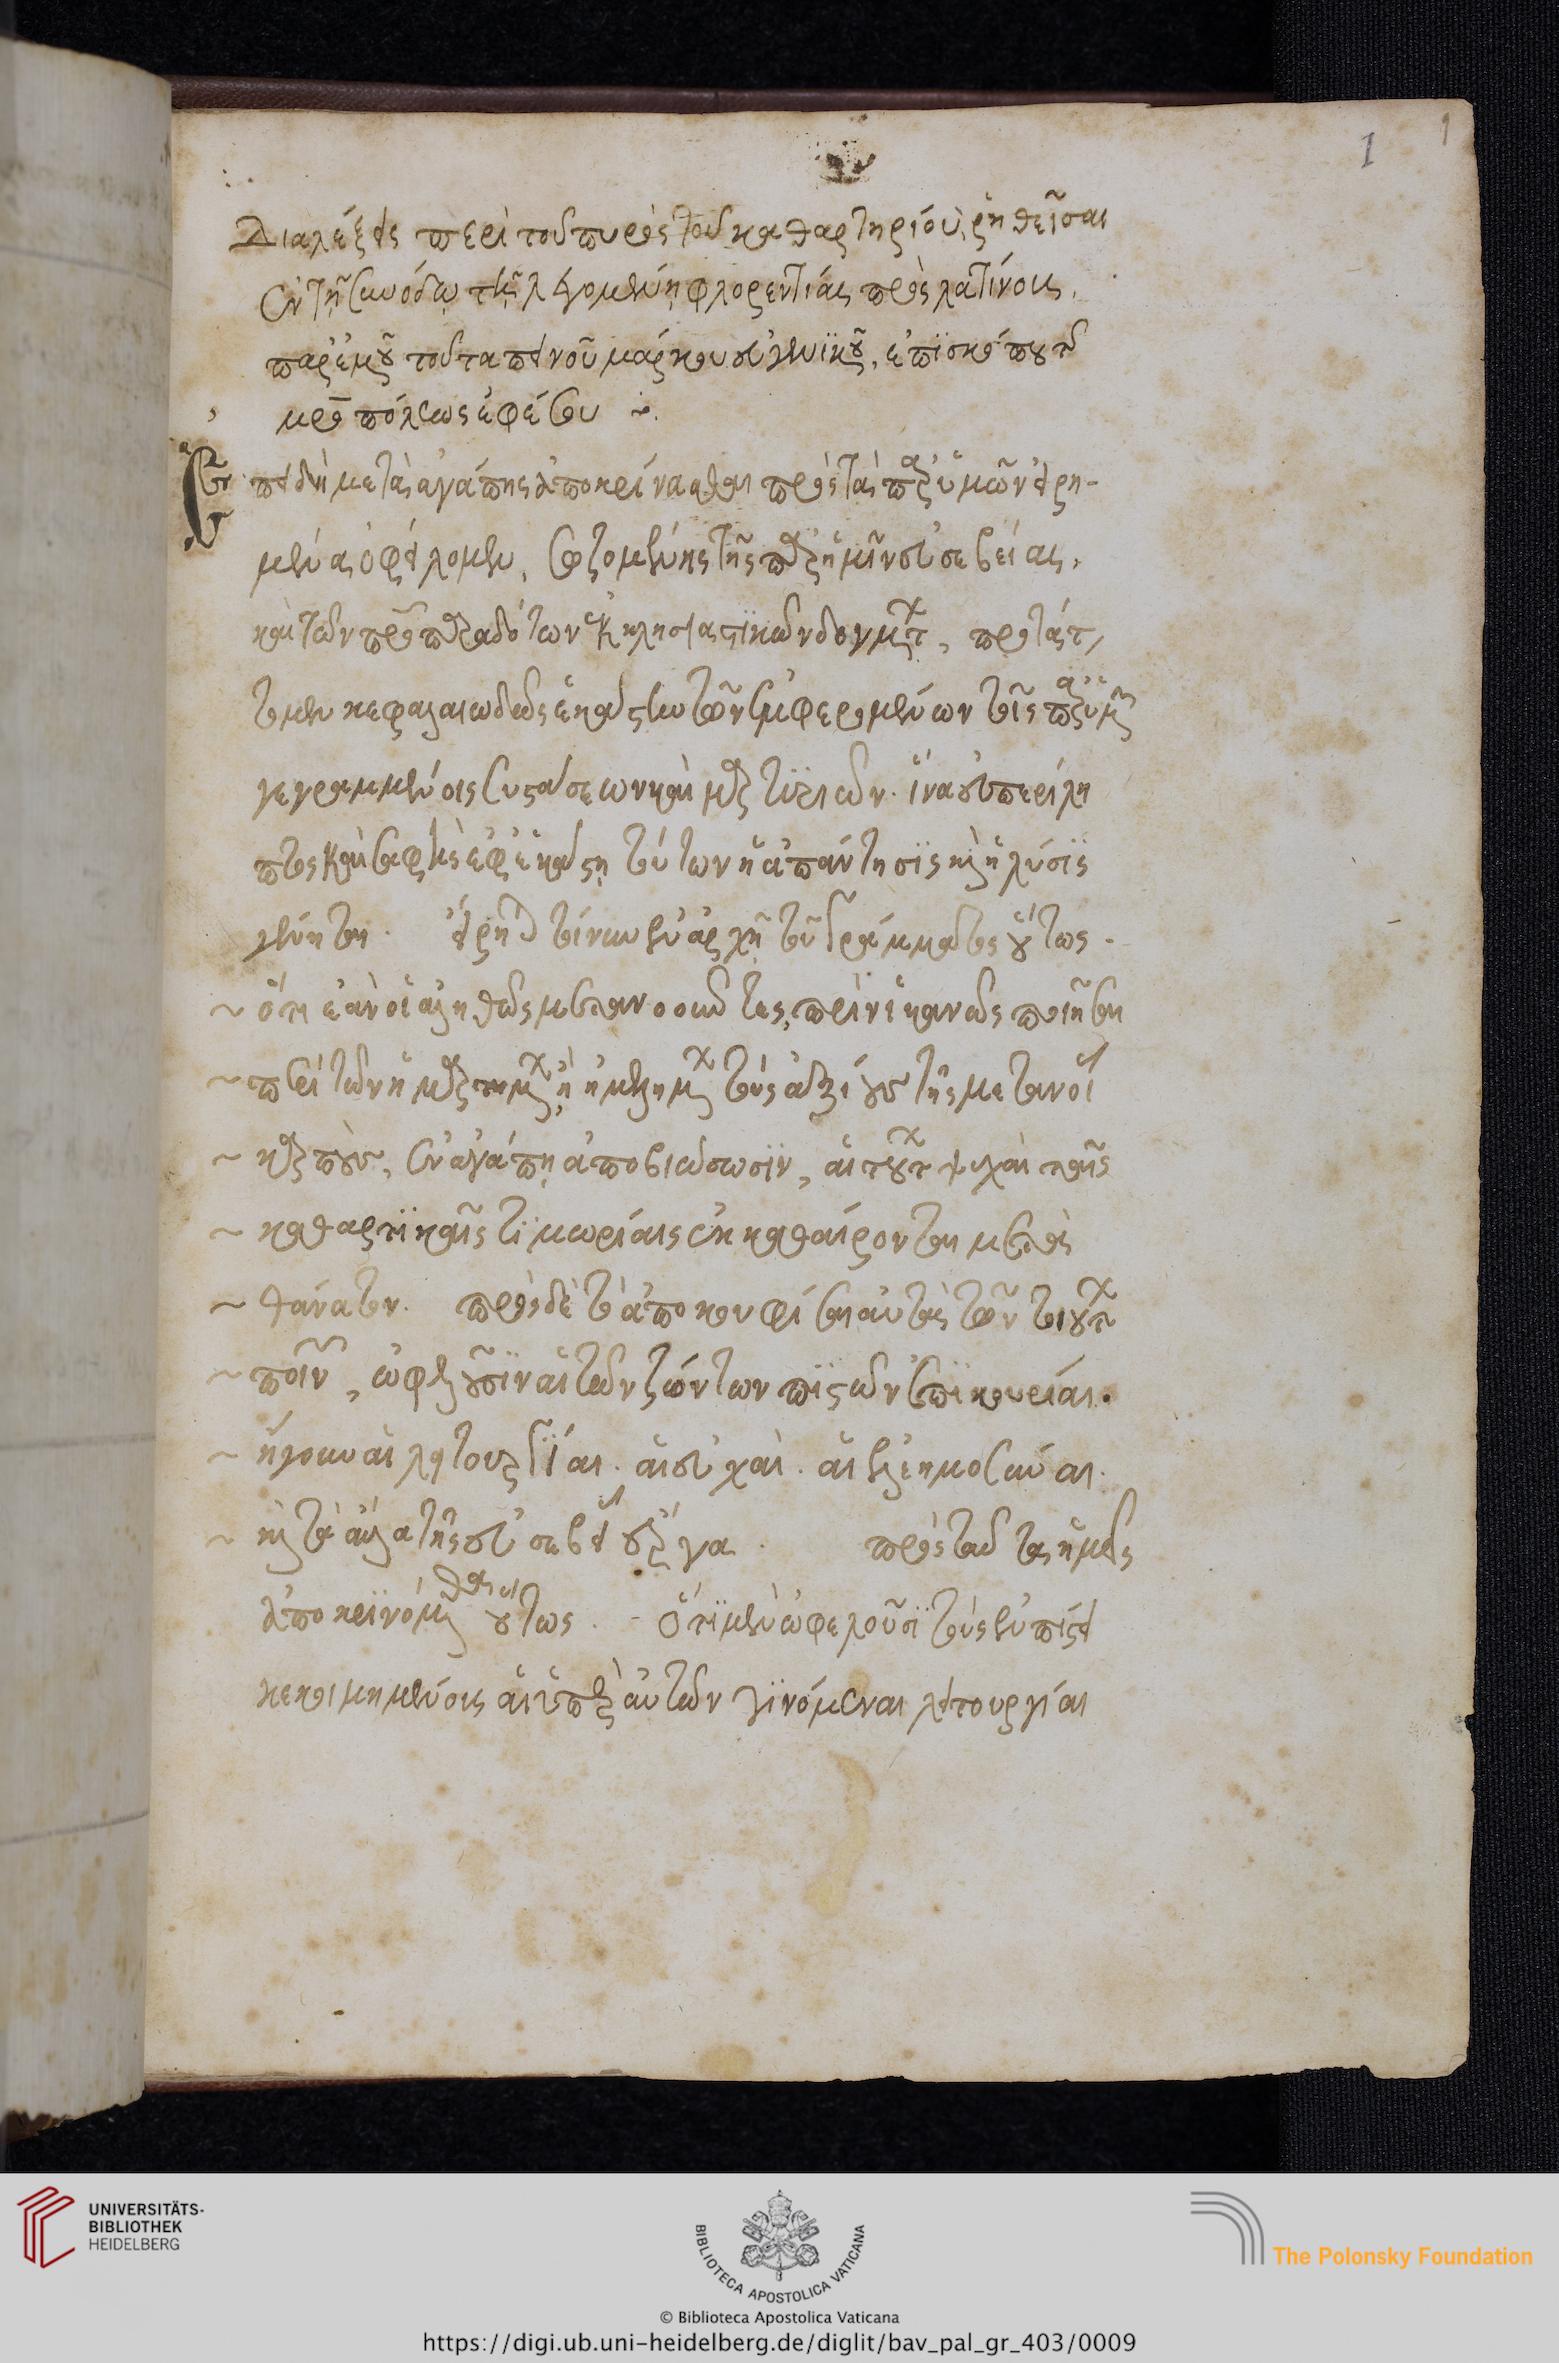 1
1
Διαλέξεις περὶ τοῦ πυρὸς τοῦ καθαρτηρίου, ῥηθεῖσαι
ἐν τῇ συνόδῳ τῇ λεγομένῃ φλορεντίας πρὸς λατίνους,
παρ' ἐμοῦ τοῦ ταπεινοῦ μάρκου εὐγενικοῦ, ἐπισκόπου τῆς
μητροπόλεως ἐφέσου
Ἐπειδὴ μετὰ ἀγάπης ἀποκρίνασθαι πρὸς τὰ παρ' ὑμῶν εἰρη-
μένα ὀφείλομεν, σωζομένης τῆς παρ' ἡμῖν εὐσεβείας,
καὶ τῶν πατροπαραδότων ἐκκλησιαστικῶν δογμάτων, προτάτ
τομεν κεφαλαιωδῶς ἑκάστην τῶν ἐμφερομένων τοῖς παρ' ὑμῶν
γεγραμμένοις συστάσεων καὶ μαρτυριῶν. ἵνα εὐπερίλη
πτος καὶ σαφὴς ἐφ' ἑκάστῃ τούτων ἡ ἀπάντησις καὶ ἡ λύσις
γένηται. εἴρηται τοίνυν ἐν ἀρχῇ τοῦ γράμματος οὕτως.
ὅτι ἐὰν οἱ ἀληθῶς μετανοοῦντες, πρὶν ἱκανῶς ποιῆσαι
περὶ τῶν ἡμαρτημάτων ἢ ἠμελημένων τοὺς ἀξίους τῆς μετανοίας
καρποὺς, ἐν ἀγάπῃ ἀποβιώσωσιν, αἱ τούτων ψυχαὶ ταῖς
καθαρτικαῖς τιμωρίαις ἐκκαθαίρονται μετὰ
θάνατον. πρὸς δὲ τὸ ἀποκουφίσαι αὐτὰς τῶν τοιούτων
ποινῶν, ὠφελοῦσιν αἱ τῶν ζώντων πιστῶν ἐπικουρίαι.
ἤγουν αἱ λειτουργίαι. αἱ εὐχαὶ. αἱ ἐλεημοσύναι.
καὶ τὰ ἄλλα τῆς εὐσεβείας ἔργα. πρὸς ταῦτα ἡμεῖς
ἀποκρινόμεθα οὕτως. ὅτι μὲν ὠφελοῦσι τοὺς ἐν πίστει
κεκοιμημένους αἱ ὑπὲρ αὐτῶν γινόμεναι λειτουργίαι
UNIVERSITÄTS-
BIBLIOTHEK
HEIDELBERG
BIBLIOTECA APOSTOLICA VATICANA
The Polonsky Foundation
© Biblioteca Apostolica Vaticana
https://digi.ub.uni-heidelberg.de/diglit/bav_pal_gr_403/0009